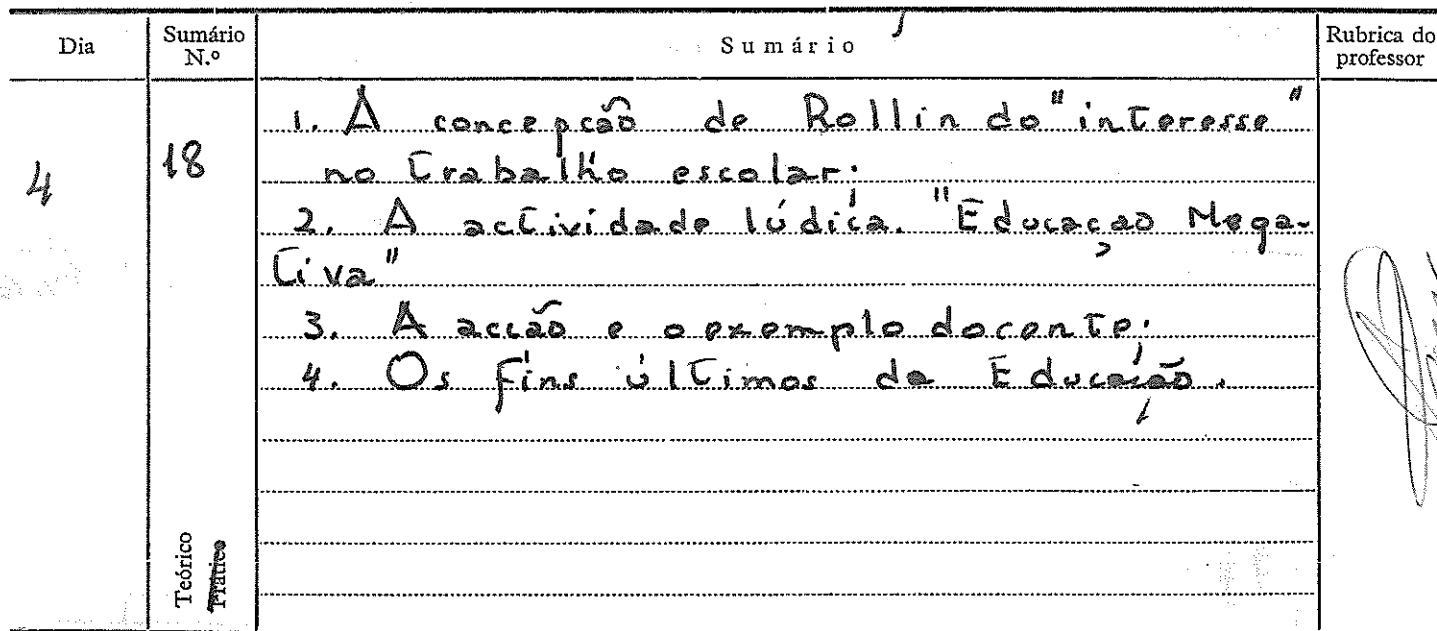 Dia
Sumário N.º
Sumário
Rubrica do professor
4
18
1. A concepção de Rollin do "interesse"
no trabalho escolar;
2. A actividade lúdica. "Educação Nega-
tiva"
3. A acção e o exemplo docente;
4. Os fins últimos da Educação.
Teórico
Prático